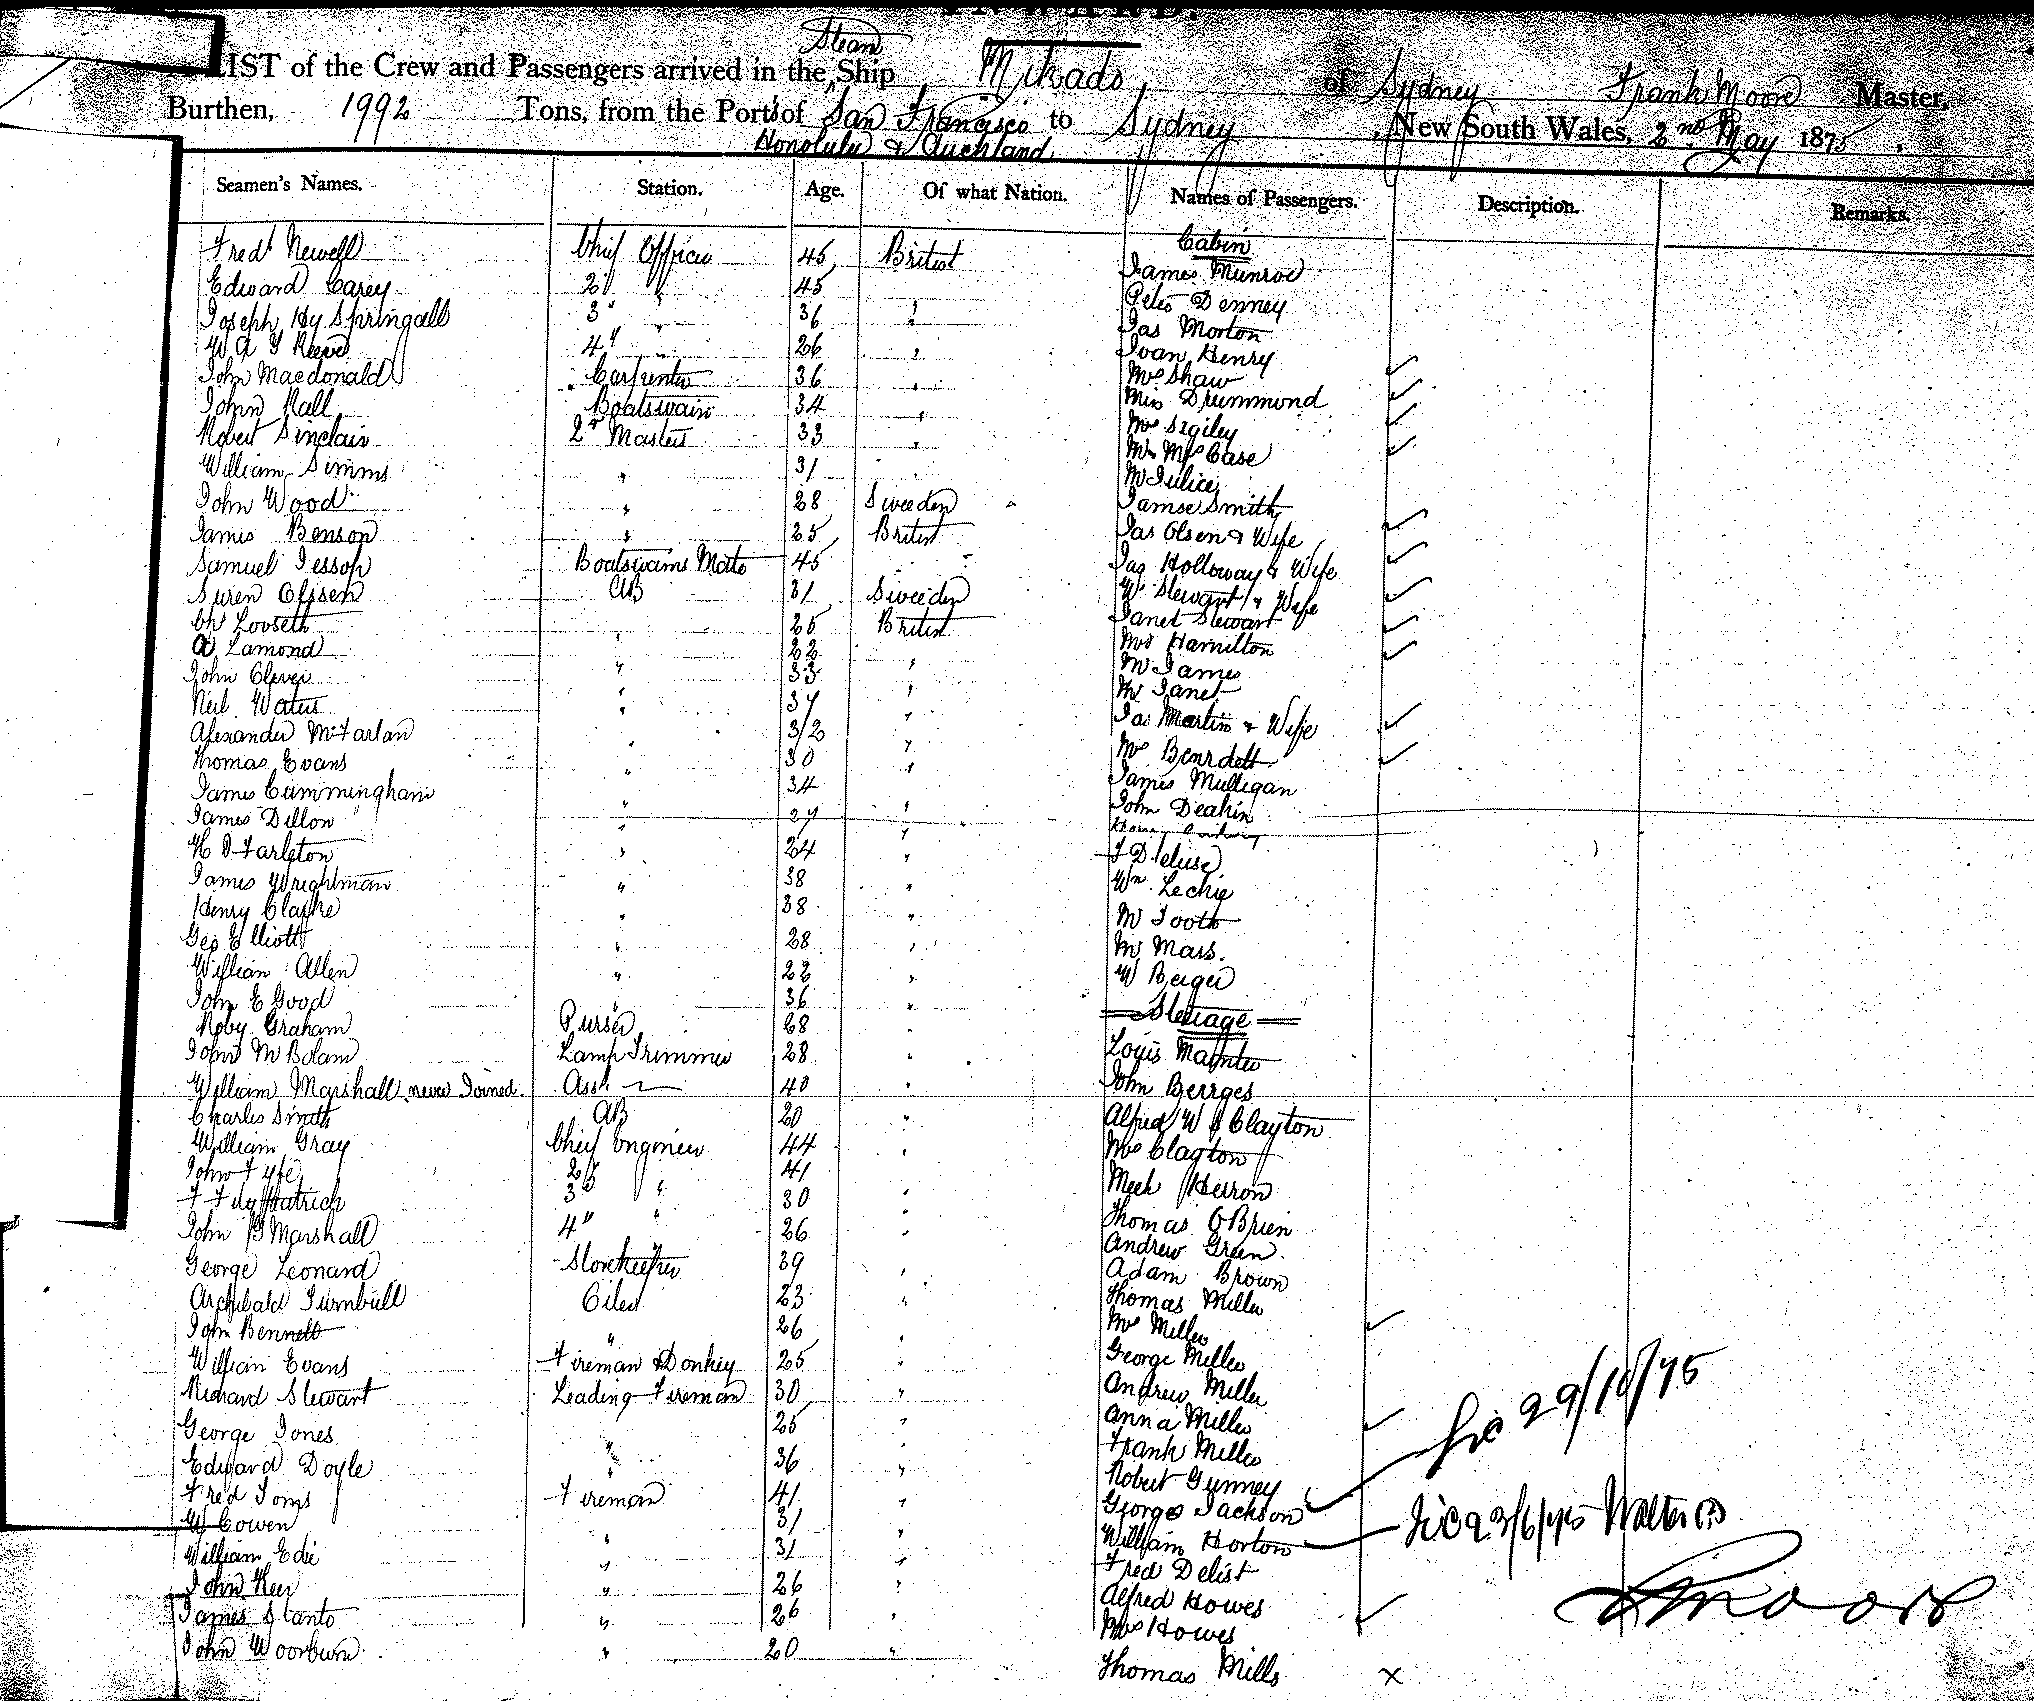 Steam
LIST of the Crew and Passengers arrived in the Ship Mikado, of Sydney Frank Moore Master,
Burthen, 1992 Tons, from the Ports of San Francisco to Sydney, New South Wales, 2nd May 1875.
Honolulu & Auckland
Seamen's Names. Station. Age. Of what Nation. Names of Passengers. Description. Remarks.
Fred Newell Chief Officer 45 British
Edward Carey 2d " 45
Joseph Hy Springall 3" " 36 "
W A J Reeve 4" " 26 "
John Macdonald Carpenter 36 "
John Rall Boatswain 34 "
Robert Sinclair 2r Masters 33 "
William Simms " 31
John Wood " 28 Sweeden
James Benson " 25 British
Samuel Jessop Boatswains Mate 45
Suren Olssen AB 31 Sweeden
Ch Looseth 25 British
A Lamond " 22
John Clever " 33 "
Neil Waters " 37 "
Alexander McFarlan 32 "
Thomas Evans " 30 "
James Cummingham " 34 "
James Dillon " 27 "
H D Tarleton " 24 "
James Wrightman " 38 "
Henry Clarke " 38 "
Geo Elliott " 28 "
William Allen " 22 "
John E Good " 36 "
Roby Graham Purser 28 "
John M Bolam Lamp Trimmer 28 "
William Marshall never Joined Asst 40 "
Charles Smith AB 20 "
William Gray Chief Engineer 44 "
John Fyfe 2d 41
F Fitzpatrick 3d " 30 "
John B Marshall 4" " 26 "
George Leonard Storekeeper 39 "
Archibald Turnbull Oiler 23 "
John Bennett " 26 "
William Evans Fireman & Donkey 25 "
Richard Stewart Leading Fireman 30 "
George Jones 25 "
Edward Doyle " 36 "
Fred Toms Fireman 41 "
W Cowen 31 "
William Edie " 31 "
John Keer " 26 "
James Stanto " 26 "
John Woorburn " 20 "
Cabin
James Munroe
Peter Denney
Jas Morton
Ivan Henry
Mrs Shaw
Miss Drummond
Mrs Sigiley
Mr Mrs Case
Mr Julice
Jamse Smith
Jas Olsen & Wife
Jas Holloway & Wife
W. Stewart & Wife
Janet Stewart
Mrs Hamilton
Mr James
Mr Janet
Jas Martin & Wife
Mrs Benrdett
James Mulligan
John Deakin
Wm Leckie
Mr Tooth
Mr Mass.
W Berger
Steerage
Louis
John Berrges
Alfred W J Clayton
Mrs Clayton
Mich Herron
Thomas O Brien
Andrew Green
Adam Brown
Thomas Miller
Mrs Miller
George Miller
Andrew Miller
Anna Miller
Frank Miller
Robert Gunney
George Jackson 29/10/75
William Horton
Fred Delist
Alfred Howes
Mrs Howes
Thomas Mills x
F Moore